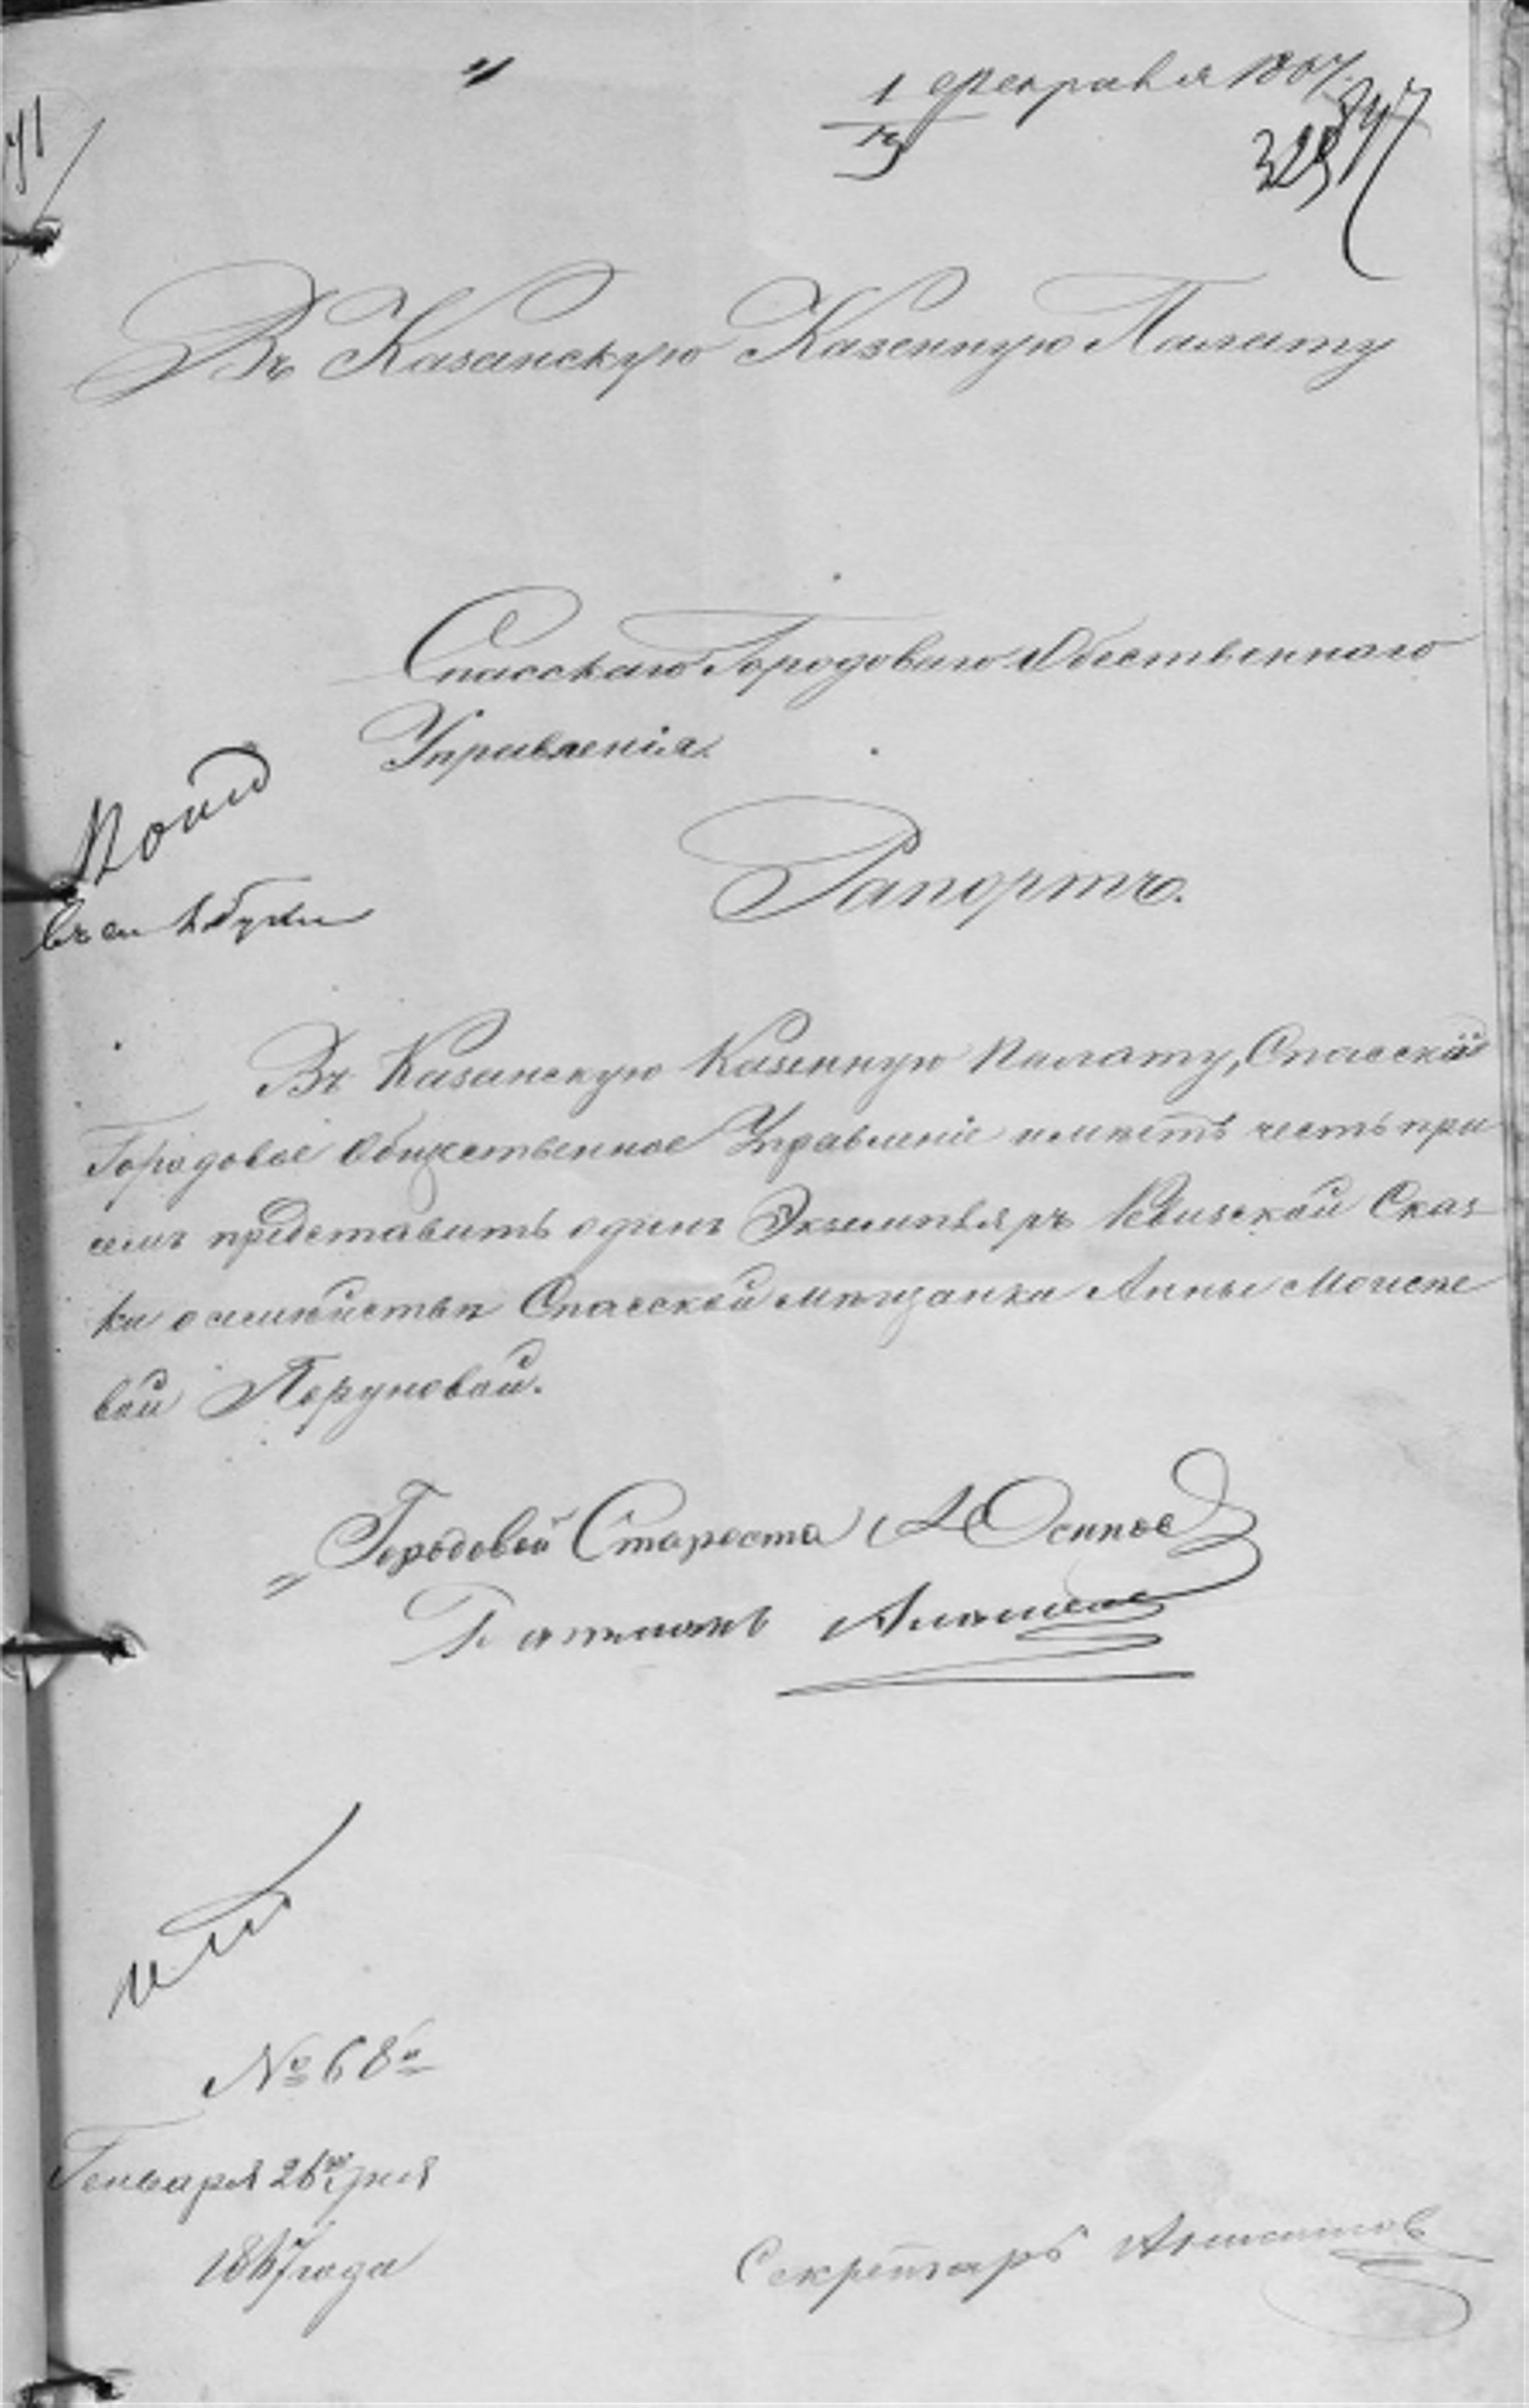 1 февраля 1867.
13
329
847
Въ Казанскую Казенную Палату
Спасскаго Городоваго Обественнаго
Управленія.
Рапортъ.
Въ Казанскую Казенную Палату, Спасское
Городовое Общественное Управленіе имѣетъ честь при
семъ представить одинъ Экземпляръ Ревизской Сказ-
ки о семействѣ Спасской мѣщанки Анны Моисее
вой Перуновой.
Городовой Староста А Осипов
Секретарь
№ 68
Генваря 26го дня
1867 года